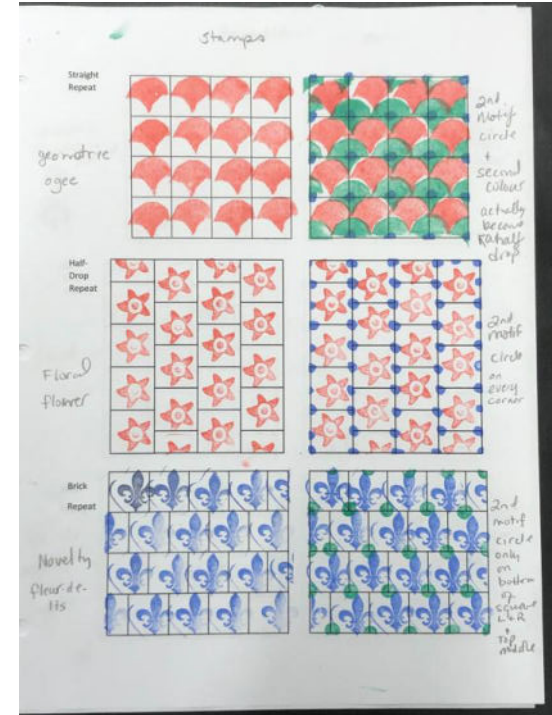 Stamps
Straight
Repeat
geometric
ogee
2nd
Motif
circle
+
second
colour
actually
became
a half
drop
Half-
Drop
Repeat
Floral
flower
2nd
motif
circle
on
every
corner
Brick
Repeat
Novelty
fleur-de-
lis
2nd
motif
circle
only
on
bottom
of
square
L+R
+
Top
middle